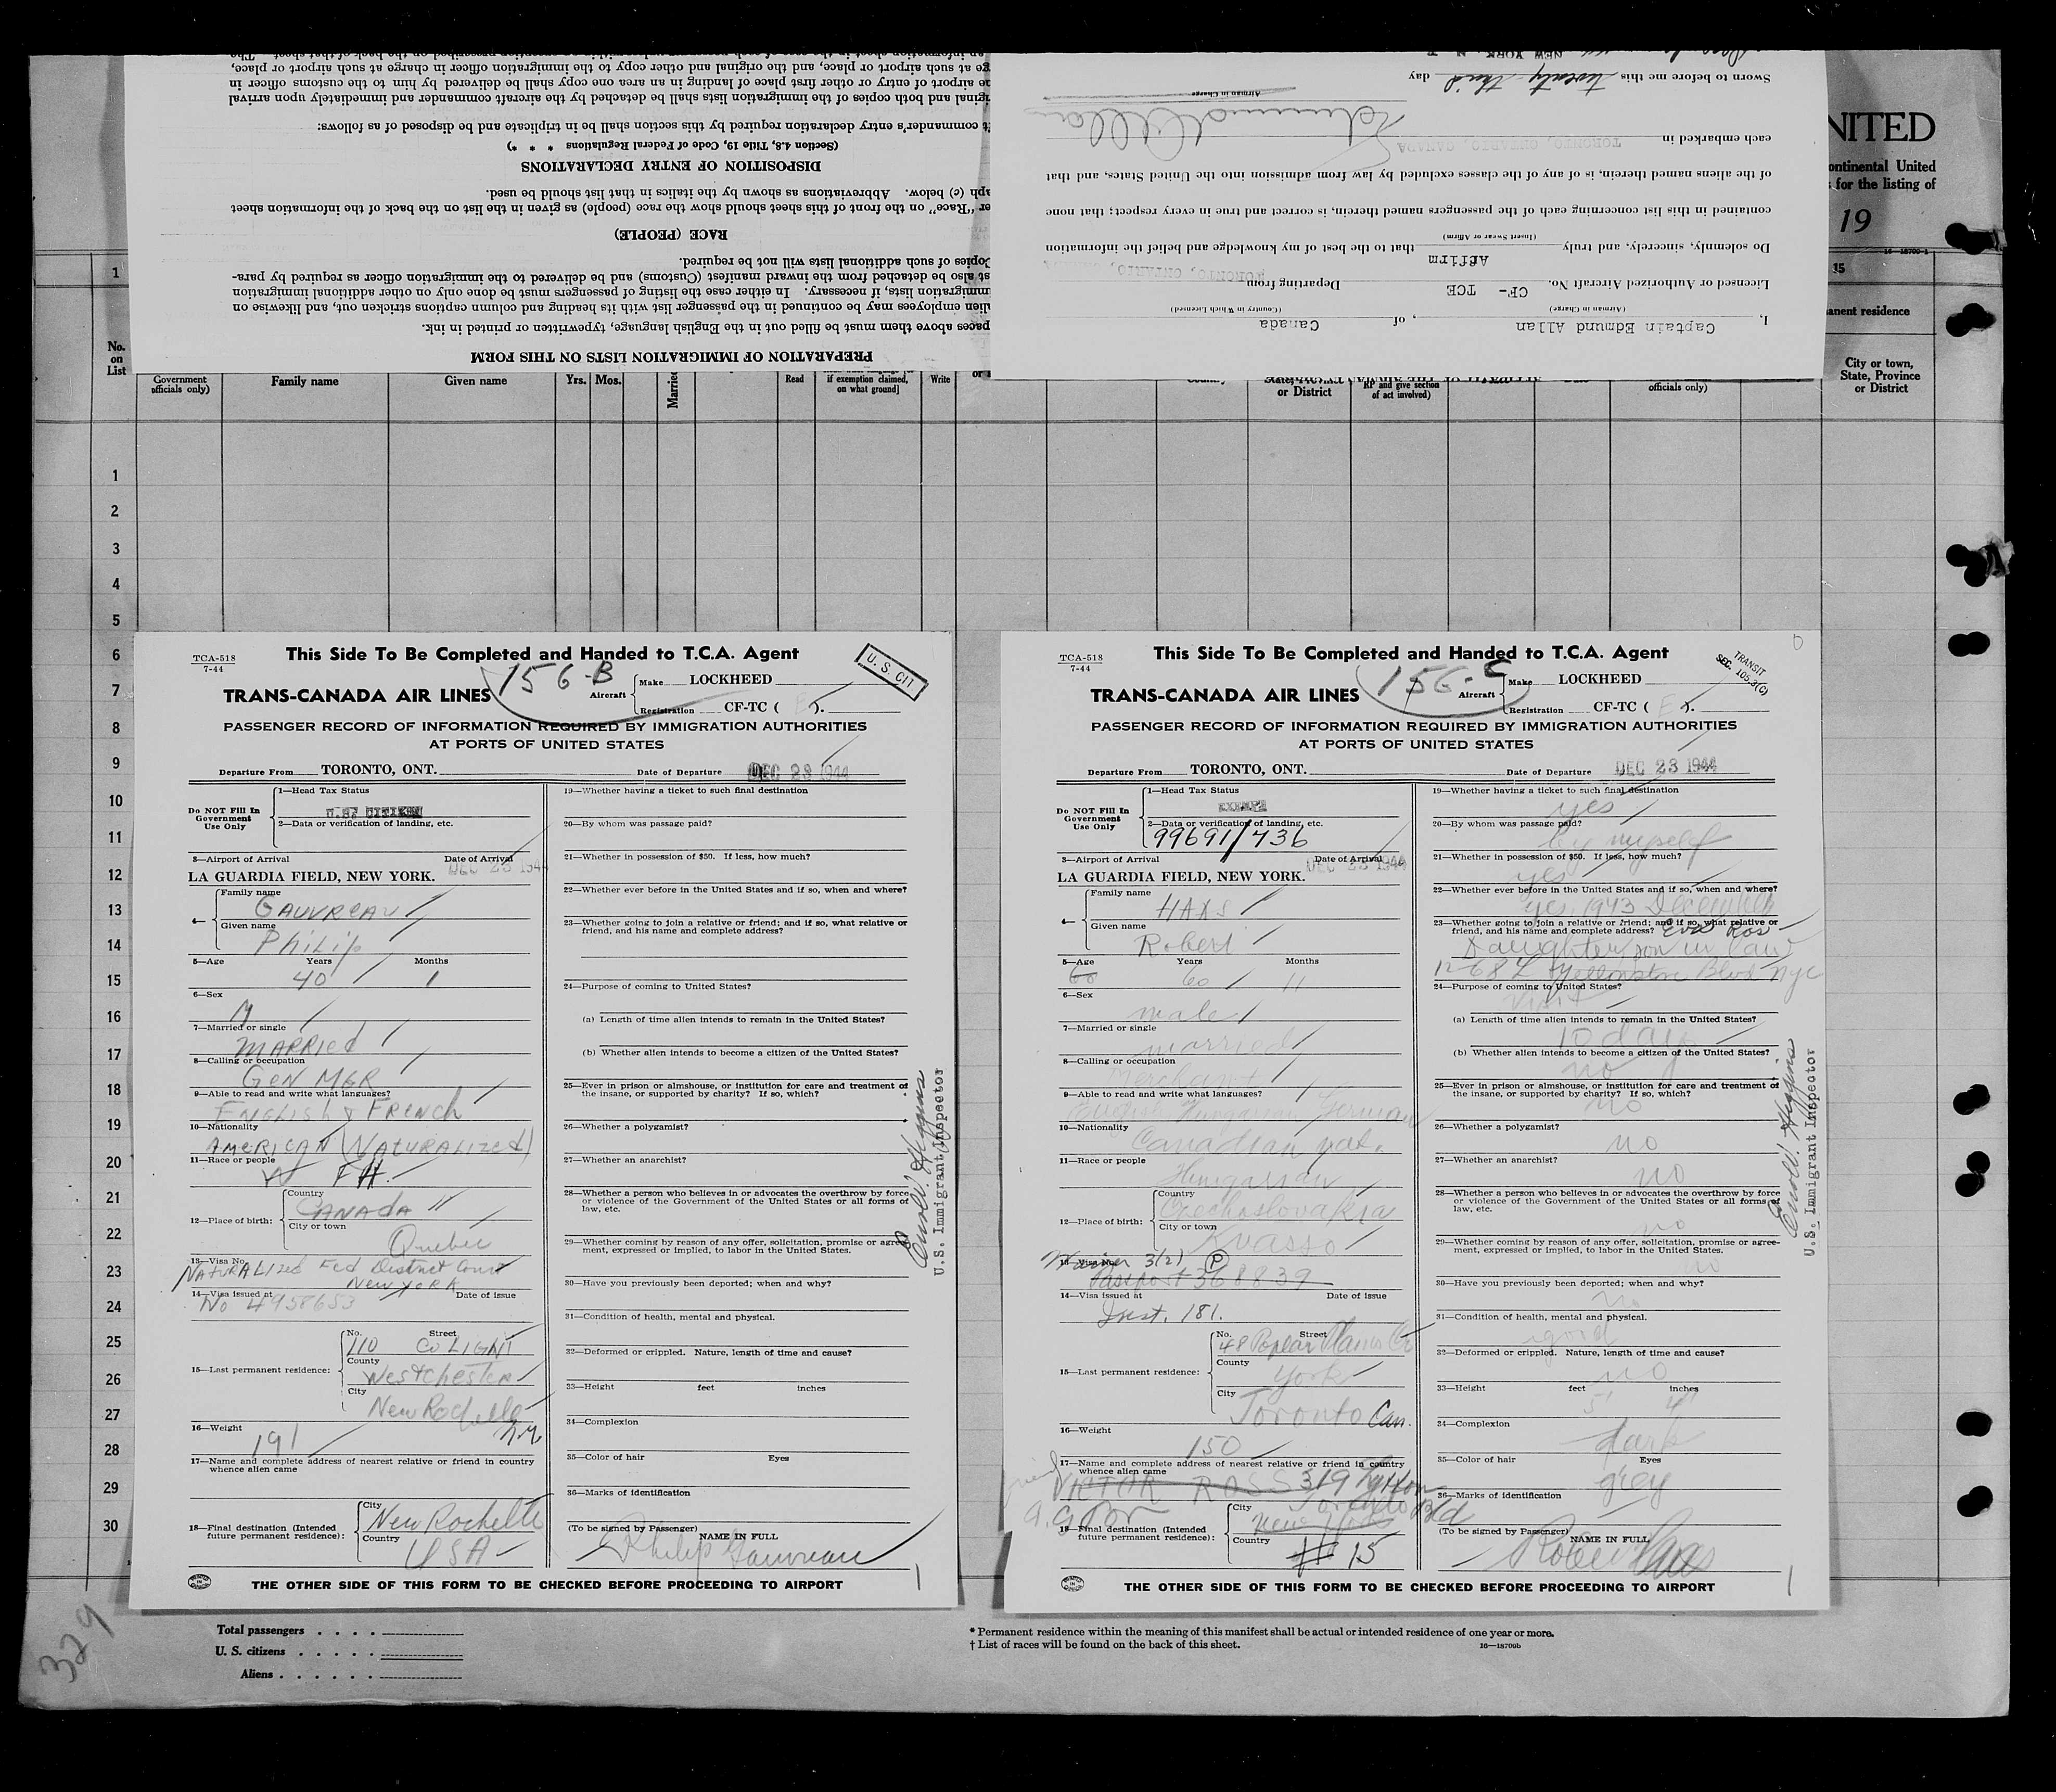 an information sheet in the case of each
ge at such airport or place, and the original and other copy to the immigration officer in charge at such airport or place,
he airport of entry or other first place of landing in an area one copy shall be delivered by him to the customs officer in
iginal and both copies of the immigration lists shall be detached by the aircraft commander and immediately upon arrival
ft commander's entry declaration required by this section shall be in triplicate and be disposed of as follows:
(Section 4.8, Title 19, Code of Federal Regulations * * *)
DISPOSITION OF ENTRY DECLARATIONS
aph (c) below. Abbreviations as shown by the italics in that list should be used.
er "Race" on the front of this sheet should show the race (people) as given in the list on the back of the information sheet
RACE (PEOPLE)
Copies of such additional lists will not be required.
st also be detached from the inward manifest (Customs) and be delivered to the immigration officer as required by para-
mmigration lists, if necessary. In either case the listing of passengers must be done only on other additional immigration
lien employees may be continued in the passenger list with its heading and column captions stricken out, and likewise on
paces above them must be filled out in the English language, typewritten or printed in ink.
PREPARATION OF IMMIGRATION LISTS ON THIS FORM
NEW YORK, N. Y.
Sworn to before me this twenty third day
Airman in Charge
Edmund Allan
each embarked in TORONTO, ONTARIO, CANADA
of the aliens named therein, is of any of the classes excluded by law from admission into the United States, and that
contained in this list concerning each of the passengers named therein, is correct and true in every respect; that none
(Insert Swear or Affirm)
Do solemnly, sincerely, and truly Affirm that to the best of my knowledge and belief the information
Licensed or Authorized Aircraft No. CF- TCE Departing from TORONTO, ONTARIO, CANADA
(Airman in Charge) (Country in Which Licensed)
I, Captain Edmund Allan, of Canada
NITED
ontinental United
for the listing of
19
16—18700-1
15
anent residence
City or town, State, Province or District
No. on List
Government officials only)
Family name
Given name
Yrs. Mos.
Married
Read
if exemption claimed, on what ground]
Write
or District
RP and give section of act involved)
officials only)
1
1
2
3
4
5
6
7
8
9
10
11
12
13
14
15
16
17
18
19
20
21
22
23
24
25
26
27
28
29
30
TCA-518
7-44
This Side To Be Completed and Handed to T.C.A. Agent
U. S. CIT.
156-B
TRANS-CANADA AIR LINES
Aircraft Make LOCKHEED
Registration CF-TC ( E ).
PASSENGER RECORD OF INFORMATION REQUIRED BY IMMIGRATION AUTHORITIES
AT PORTS OF UNITED STATES
Departure From TORONTO, ONT. Date of Departure DEC 23 1944
Do NOT Fill In Government Use Only
1—Head Tax Status
U.S. CITIZEN
2—Data or verification of landing, etc.
3—Airport of Arrival Date of Arrival
LA GUARDIA FIELD, NEW YORK. DEC 23 1944
4— Family name
GAUVREAU
Given name
PhiLip
5—Age Years Months
40 1
6—Sex
M
7—Married or single
MARRIed
8—Calling or occupation
GeN MGR
9—Able to read and write what languages?
ENGLISH & FRENCH
10—Nationality
AMERICAN (NATURALIZEd)
11—Race or people
W FH.
12—Place of birth: Country
CANAdA
City or town
Quebec
13—Visa No.
NATURALIZed Fed District Court
New York
14—Visa issued at Date of issue
No 4958653
15—Last permanent residence: No. Street
110 CoLIGNI
County
Westchester
City
New Rochelle
N.Y.
16—Weight
191
17—Name and complete address of nearest relative or friend in country
whence alien came
18—Final destination (Intended future permanent residence): City
New Rochelle
Country
USA
19—Whether having a ticket to such final destination
20—By whom was passage paid?
21—Whether in possession of $50. If less, how much?
22—Whether ever before in the United States and if so, when and where?
23—Whether going to join a relative or friend; and if so, what relative or
friend, and his name and complete address?
24—Purpose of coming to United States?
(a) Length of time alien intends to remain in the United States?
(b) Whether alien intends to become a citizen of the United States?
25—Ever in prison or almshouse, or institution for care and treatment of
the insane, or supported by charity? If so, which?
26—Whether a polygamist?
27—Whether an anarchist?
28—Whether a person who believes in or advocates the overthrow by force
or violence of the Government of the United States or all forms of
law, etc.
29—Whether coming by reason of any offer, solicitation, promise or agree-
ment, expressed or implied, to labor in the United States.
30—Have you previously been deported; when and why?
31—Condition of health, mental and physical.
32—Deformed or crippled. Nature, length of time and cause?
33—Height feet inches
34—Complexion
35—Color of hair Eyes
36—Marks of identification
(To be signed by Passenger) NAME IN FULL
Philip Gauvreau
U.S. Immigrant Inspector
THE OTHER SIDE OF THIS FORM TO BE CHECKED BEFORE PROCEEDING TO AIRPORT
TCA-518
7-44
This Side To Be Completed and Handed to T.C.A. Agent
TRANSIT
SEC. 105.3(C)
156-C
TRANS-CANADA AIR LINES
Aircraft Make LOCKHEED
Registration CF-TC ( E ).
PASSENGER RECORD OF INFORMATION REQUIRED BY IMMIGRATION AUTHORITIES
AT PORTS OF UNITED STATES
Departure From TORONTO, ONT. Date of Departure DEC 23 1944
Do NOT Fill In Government Use Only
1—Head Tax Status
EXEMPT
2—Data or verification of landing, etc.
99691/736
3—Airport of Arrival Date of Arrival
LA GUARDIA FIELD, NEW YORK. DEC 23 1944
4— Family name
HAAS
Given name
Robert
5—Age Years Months
60 60 11
6—Sex
male
7—Married or single
married
8—Calling or occupation
Merchant
9—Able to read and write what languages?
English Hungarian German
10—Nationality
Canadian nat.
11—Race or people
Hungarian
12—Place of birth: Country
Czechoslovakia
City or town
Kvasso
13—Visa No.
Waiver 3(2) P
Passport 368839
14—Visa issued at Date of issue
Inst. 181.
15—Last permanent residence: No. Street
48 Poplar Plains Cr
County
York
City
Toronto Can.
16—Weight
150
17—Name and complete address of nearest relative or friend in country
whence alien came
VICTOR ROSS 319 Lytton
Toronto Bld
18—Final destination (Intended future permanent residence): City
New York
Country
15
19—Whether having a ticket to such final destination
yes
20—By whom was passage paid?
by myself
21—Whether in possession of $50. If less, how much?
yes
22—Whether ever before in the United States and if so, when and where?
yes 1943 December
23—Whether going to join a relative or friend; and if so, what relative or
friend, and his name and complete address? Eva Ros
Daughter, son in law
Yellowstone Blvd NYC
24—Purpose of coming to United States?
Visit
(a) Length of time alien intends to remain in the United States?
10 days
(b) Whether alien intends to become a citizen of the United States?
no
25—Ever in prison or almshouse, or institution for care and treatment of
the insane, or supported by charity? If so, which?
no
26—Whether a polygamist?
no
27—Whether an anarchist?
no
28—Whether a person who believes in or advocates the overthrow by force
or violence of the Government of the United States or all forms of
law, etc.
no
29—Whether coming by reason of any offer, solicitation, promise or agree-
ment, expressed or implied, to labor in the United States.
no
30—Have you previously been deported; when and why?
no
31—Condition of health, mental and physical.
good
32—Deformed or crippled. Nature, length of time and cause?
no
33—Height feet inches
5' 4"
34—Complexion
dark
35—Color of hair Eyes
grey
36—Marks of identification
(To be signed by Passenger) NAME IN FULL
Robert Haas
U.S. Immigrant Inspector
THE OTHER SIDE OF THIS FORM TO BE CHECKED BEFORE PROCEEDING TO AIRPORT
329
Total passengers
U. S. citizens
Aliens
* Permanent residence within the meaning of this manifest shall be actual or intended residence of one year or more.
† List of races will be found on the back of this sheet. 16—18700b